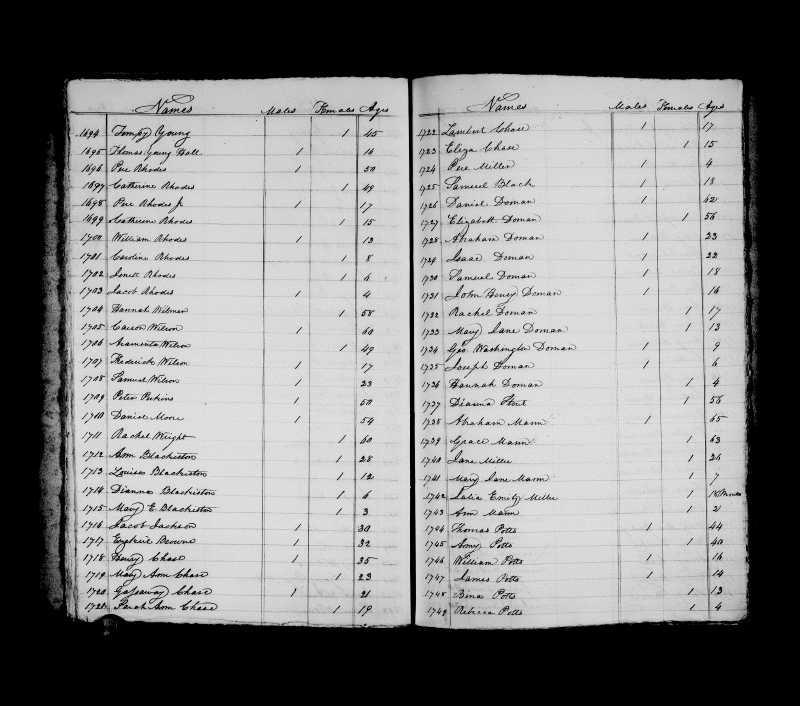 Names Males Females Ages
1694 Tempy Young 1 45
1695 Thomas Young Hall 1 16
1696 Pere Rhodes 1 50
1697 Catherine Rhodes 1 49
1698 Pere Rhodes Jr 1 17
1699 Catherine Rhodes 1 15
1700 William Rhodes 1 13
1701 Caroline Rhodes 1 8
1702 Rhodes 1 6
1703 Jacob Rhodes 1 4
1704 Hannah Wilmer 1 58
1705 Wilson 1 60
1706 Araminta Wilson 1 49
1707 Frederick Wilson 1 17
1708 Samuel Wilson 1 23
1709 Peter Perkins 1 50
1710 Daniel Moore 1 54
1711 Rachel Wright 1 60
1712 Ann Blackiston 1 28
1713 Louisa Blackiston 1 12
1714 Dianna Blackiston 1 6
1715 Mary E. Blackiston 1 3
1716 Jacob Jackson 1 30
1717 Ezekiel Browne 1 32
1718 Henry Chase 1 35
1719 Mary Ann Chase 1 23
1720 Gassaway Chase 1 21
1721 Sarah Ann Chase 1 19
Names Males Females Ages
1722 Lambert Chase 1 17
1723 Eliza Chase 1 15
1724 Pere Miller 1 4
1725 Samuel Black 1 18
1726 Daniel Doman 1 62
1727 Elizabeth Doman 1 56
1728 Abraham Doman 1 23
1729 Isaac Doman 1 22
1730 Samuel Doman 1 18
1731 John Henry Doman 1 16
1732 Rachel Doman 1 17
1733 Mary Jane Doman 1 13
1734 Geo Washington Doman 1 9
1735 Joseph Doman 1 6
1736 Hannah Doman 1 4
1737 Dianna Stout 1 56
1738 Abraham Mann 1 65
1739 Grace Mann 1 63
1740 Jane Miller 1 26
1741 Mary Jane Mann 1 7
1742 Emily Miller 1 18 Months
1743 Ann Mann 1 2
1744 Thomas Potts 1 44
1745 Amy Potts 1 40
1746 William Potts 1 16
1747 James Potts 1 14
1748 Potts 1 13
1749 Rebecca Potts 1 4